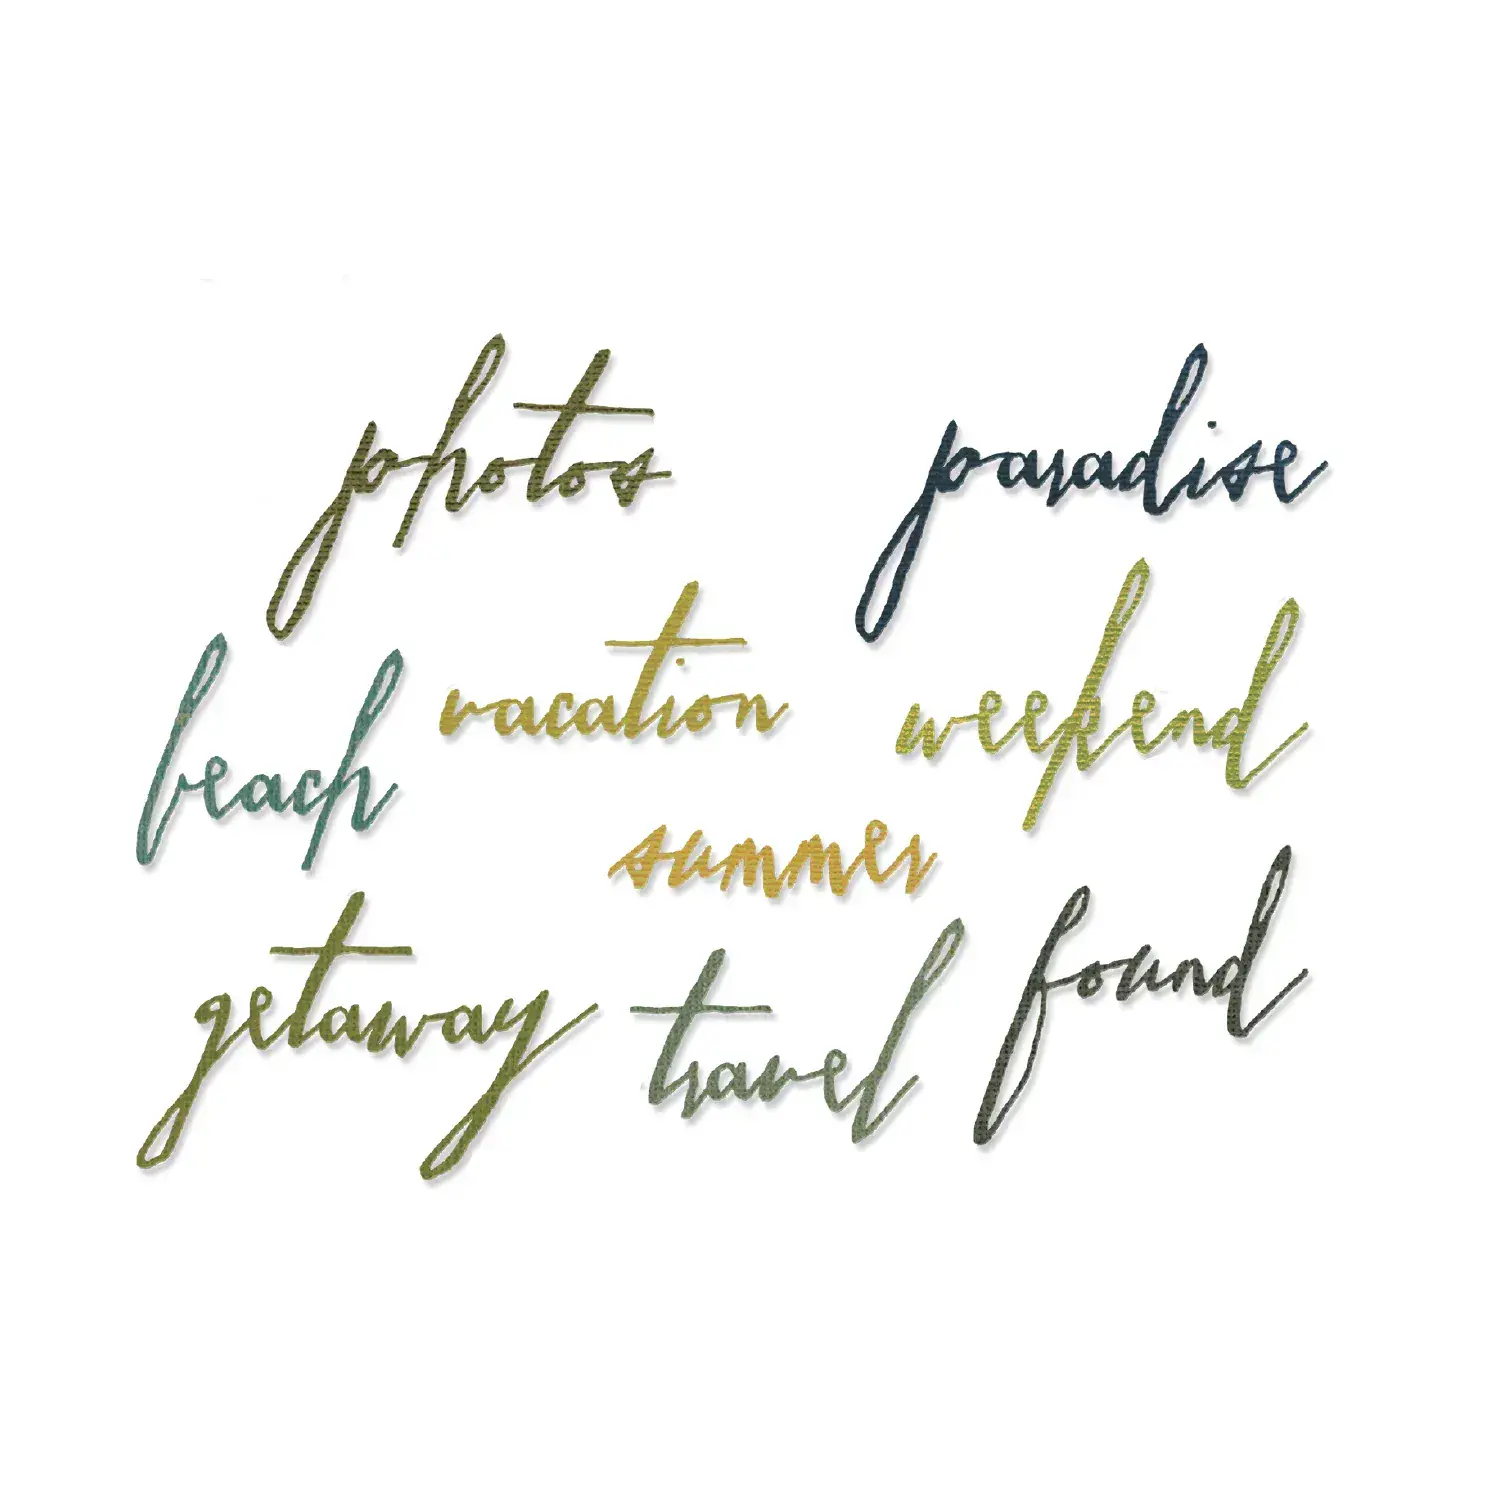 photos
paradise
vacation
weekend
beach
summer
getaway
travel
found